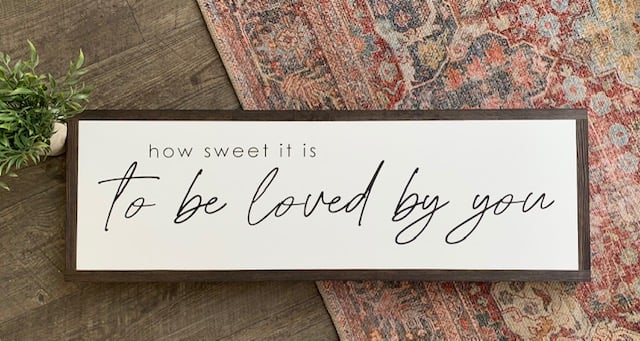 how sweet it is
to be loved by you